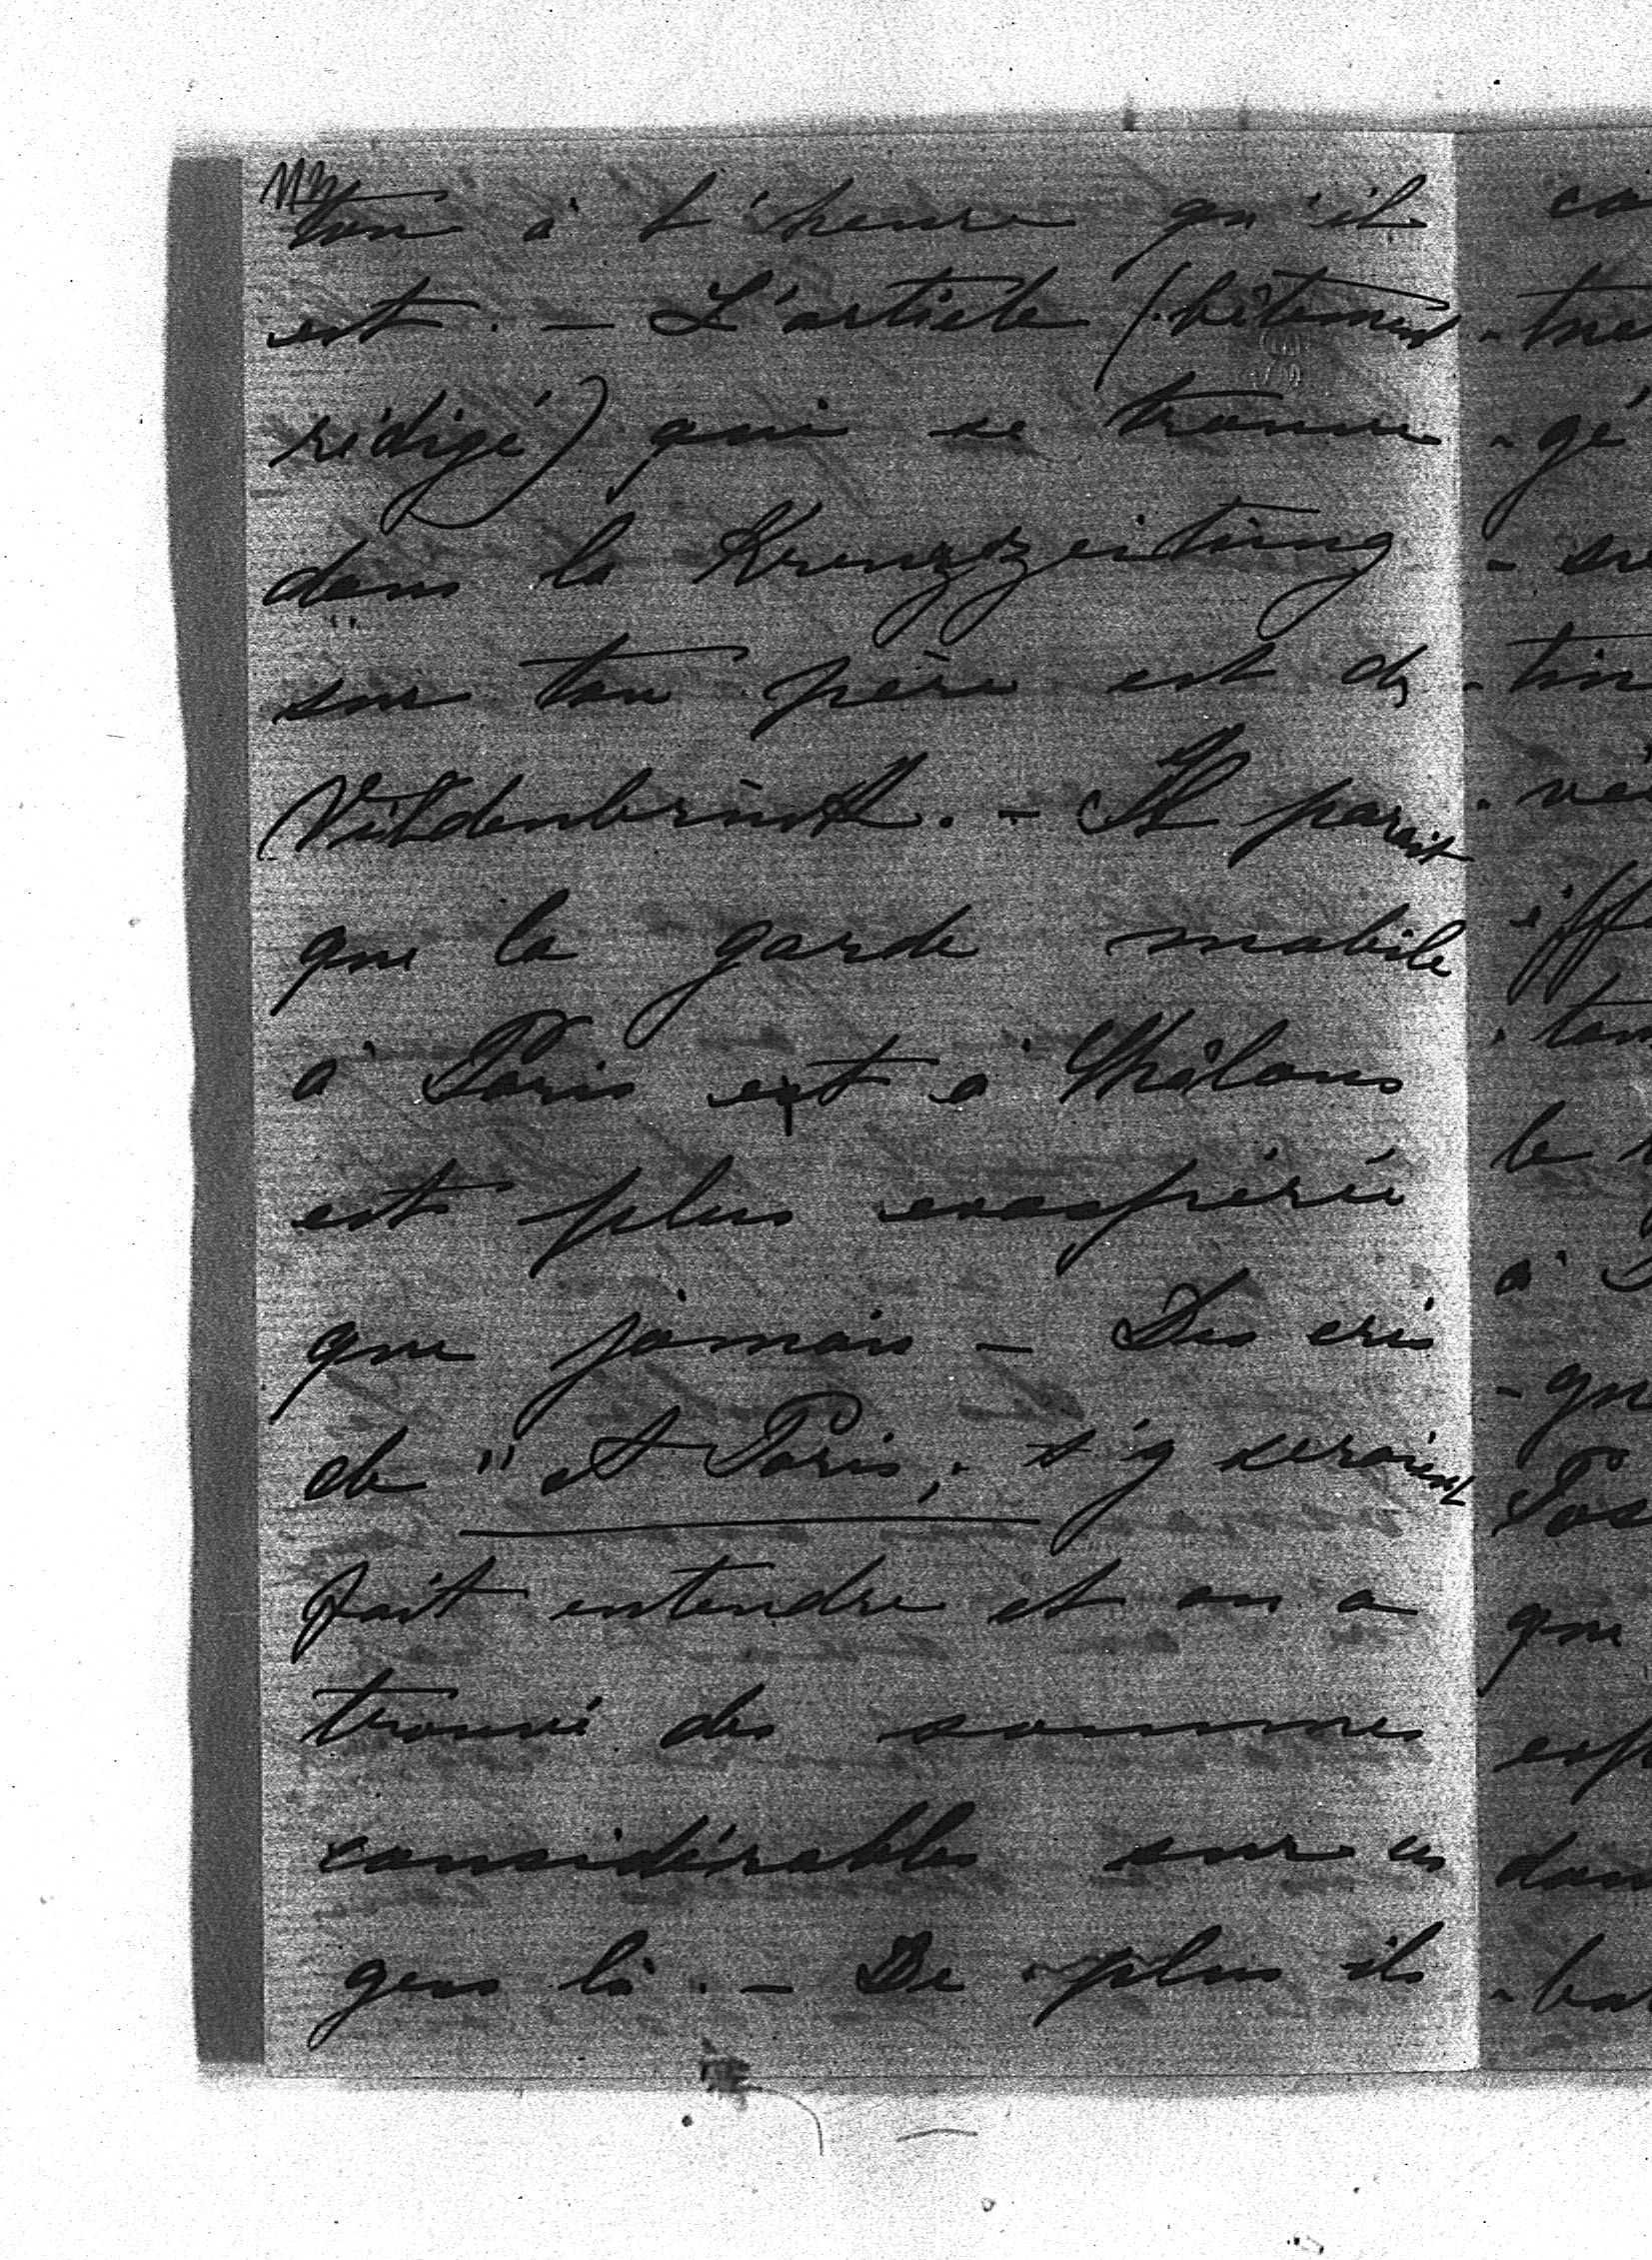 ton à l'heure qu'il
est. — L'article (bêtement
rédigé) qui se trouve
dans la Kreuzzeitung
sur ton père est de
Vildenbruch. — Il parait
que la garde mobile
à Paris et à Châlons
est plus exaspérée
que jamais — Des cris
de "à Paris" s'y seraient
fait entendre et on a
trouvé des sommes
considérables sur ces
gens là. — De plus ils